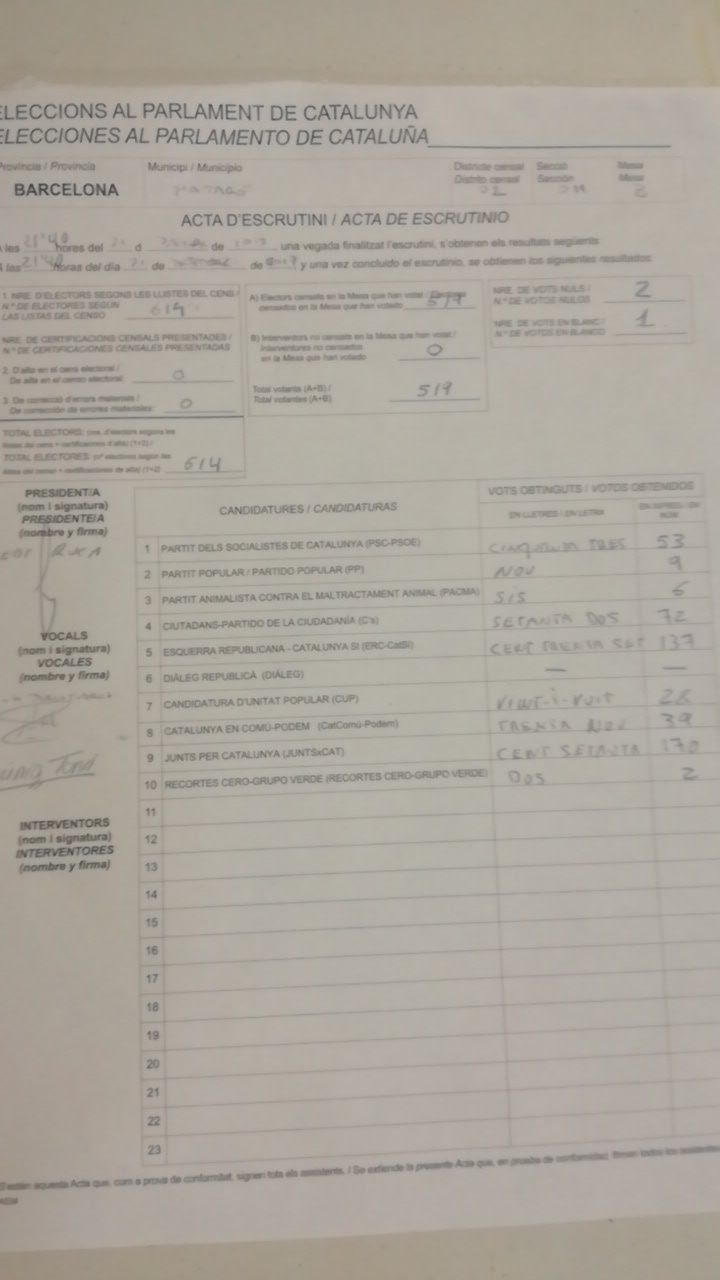 ELECCIONS AL PARLAMENT DE CATALUNYA
ELECCIONES AL PARLAMENTO DE CATALUÑA
Província / Provincia
Municipi / Municipio
Districte censal Secció Mesa
Distrito censal Sección Mesa
BARCELONA
02
ACTA D'ESCRUTINI / ACTA DE ESCRUTINIO
A les 21'40 hores del 21 d de una vegada finalitzat l'escrutini, s'obtenen els resultats següents
A las 21'40 horas del día 21 de de y una vez concluido el escrutinio, se obtienen los siguientes resultados:
1. NRE. D'ELECTORS SEGONS LES LLISTES DEL CENS /
N.º DE ELECTORES SEGÚN
LAS LISTAS DEL CENSO 614
NRE. DE CERTIFICACIONS CENSALS PRESENTADES /
N.º DE CERTIFICACIONES CENSALES PRESENTADAS
2. D'alta en el cens electoral /
De alta en el censo electoral: 0
3. De correcció d'errors materials /
De corrección de errores materiales: 0
TOTAL ELECTORS: (nre. d'electors segons les
llistes del cens + certificacions d'alta) (1+2) /
TOTAL ELECTORES: (nº electores según las
listas del censo + certificaciones de alta) (1+2) 614
A) Electors censats en la Mesa que han votat / Electores
censados en la Mesa que han votado 519
B) Interventors no censats en la Mesa que han votat /
Interventores no censados
en la Mesa que han votado 0
Total votants (A+B) /
Total votantes (A+B) 519
NRE. DE VOTS NULS /
N.º DE VOTOS NULOS 2
NRE. DE VOTS EN BLANC /
N.º DE VOTOS EN BLANCO 1
PRESIDENT/A
(nom i signatura)
PRESIDENTE/A
(nombre y firma)
VOCALS
(nom i signatura)
VOCALES
(nombre y firma)
INTERVENTORS
(nom i signatura)
INTERVENTORES
(nombre y firma)
CANDIDATURES / CANDIDATURAS
VOTS OBTINGUTS / VOTOS OBTENIDOS
EN LLETRES / EN LETRA
1 PARTIT DELS SOCIALISTES DE CATALUNYA (PSC-PSOE) CINQUANTA TRES 53
2 PARTIT POPULAR / PARTIDO POPULAR (PP) NOU 9
3 PARTIT ANIMALISTA CONTRA EL MALTRACTAMENT ANIMAL (PACMA) SIS 6
4 CIUTADANS-PARTIDO DE LA CIUDADANÍA (C's) SETANTA DOS 72
5 ESQUERRA REPUBLICANA - CATALUNYA SI (ERC-CatSí) CENT TRENTA SET 137
6 DIÀLEG REPUBLICÀ (DIÀLEG) — —
7 CANDIDATURA D'UNITAT POPULAR (CUP) VINT-I-VUIT 28
8 CATALUNYA EN COMÚ-PODEM (CatComú-Podem) TRENTA NOU 39
9 JUNTS PER CATALUNYA (JUNTSxCAT) CENT SETANTA 170
10 RECORTES CERO-GRUPO VERDE (RECORTES CERO-GRUPO VERDE) DOS 2
11
12
13
14
15
16
17
18
19
20
21
22
23
S'estén aquesta Acta que, com a prova de conformitat, signen tots els assistents. / Se extiende la presente Acta que, en prueba de conformidad, firman todos los asistentes